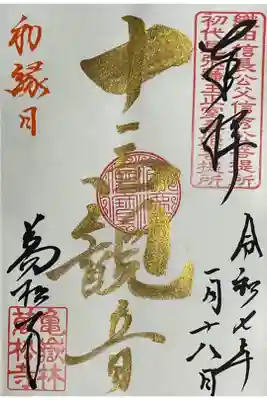 織田信長公父信秀公菩提所
奉拝
令和七年
一月十八日
十一面観音
初縁日
萬松寺
亀嶽林
萬松寺